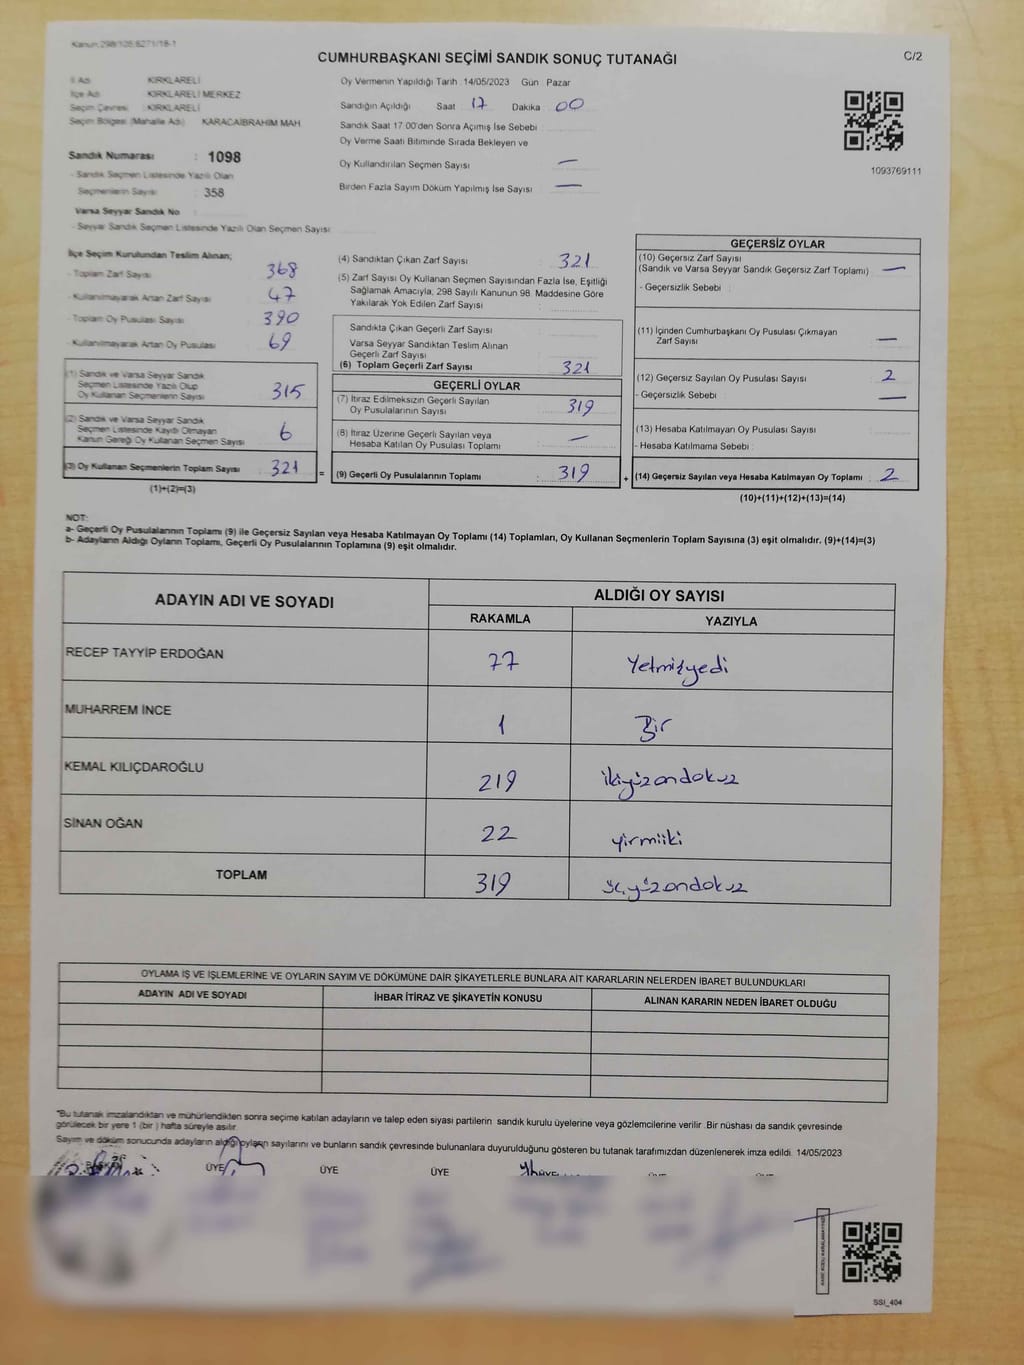 Kanun:298/105;6271/18-1
CUMHURBAŞKANI SEÇİMİ SANDIK SONUÇ TUTANAĞI
C/2
İl Adı KIRKLARELİ
İlçe Adı KIRKLARELİ MERKEZ
Seçim Çevresi : KIRKLARELİ
Seçim Bölgesi (Mahalle Adı) KARACAİBRAHİM MAH
Sandık Numarası : 1098
- Sandık Seçmen Listesinde Yazılı Olan
Seçmenlerin Sayısı : 358
Varsa Seyyar Sandık No
- Seyyar Sandık Seçmen Listesinde Yazılı Olan Seçmen Sayısı
Oy Vermenin Yapıldığı Tarih : 14/05/2023 Gün Pazar
Sandığın Açıldığı Saat 17 Dakika 00
Sandık Saat 17 00'den Sonra Açımış İse Sebebi
Oy Verme Saati Bitiminde Sırada Bekleyen ve
Oy Kullandırılan Seçmen Sayısı —
Birden Fazla Sayım Döküm Yapılmış İse Sayısı —
1093769111
İlçe Seçim Kurulundan Teslim Alınan;
- Toplam Zarf Sayısı 368
- Kullanılmayarak Artan Zarf Sayısı 47
- Toplam Oy Pusulası Sayısı 390
- Kullanılmayarak Artan Oy Pusulası 69
(1) Sandık ve Varsa Seyyar Sandık
Seçmen Listesinde Yazılı Olup
Oy Kullanan Seçmenlerin Sayısı 315
(2) Sandık ve Varsa Seyyar Sandık
Seçmen Listesinde Kayıtlı Olmayan
Kanun Gereği Oy Kullanan Seçmen Sayısı 6
(3) Oy Kullanan Seçmenlerin Toplam Sayısı 321 =
(1)+(2)=(3)
(4) Sandıktan Çıkan Zarf Sayısı 321
(5) Zarf Sayısı Oy Kullanan Seçmen Sayısından Fazla İse, Eşitliği
Sağlamak Amacıyla, 298 Sayılı Kanunun 98. Maddesine Göre
Yakılarak Yok Edilen Zarf Sayısı
Sandıkta Çıkan Geçerli Zarf Sayısı
Varsa Seyyar Sandıktan Teslim Alınan
Geçerli Zarf Sayısı
(6) Toplam Geçerli Zarf Sayısı 321
GEÇERLİ OYLAR
(7) İtiraz Edilmeksizin Geçerli Sayılan
Oy Pusulalarının Sayısı 319
(8) İtiraz Üzerine Geçerli Sayılan veya
Hesaba Katılan Oy Pusulası Toplamı —
(9) Geçerli Oy Pusulalarının Toplamı 319 +
GEÇERSİZ OYLAR
(10) Geçersiz Zarf Sayısı
(Sandık ve Varsa Seyyar Sandık Geçersiz Zarf Toplamı) —
- Geçersizlik Sebebi :
(11) İçinden Cumhurbaşkanı Oy Pusulası Çıkmayan
Zarf Sayısı —
(12) Geçersiz Sayılan Oy Pusulası Sayısı 2
- Geçersizlik Sebebi : —
(13) Hesaba Katılmayan Oy Pusulası Sayısı
- Hesaba Katılmama Sebebi :
(14) Geçersiz Sayılan veya Hesaba Katılmayan Oy Toplamı : 2
(10)+(11)+(12)+(13)=(14)
NOT:
a- Geçerli Oy Pusulalarının Toplamı (9) ile Geçersiz Sayılan veya Hesaba Katılmayan Oy Toplamı (14) Toplamları, Oy Kullanan Seçmenlerin Toplam Sayısına (3) eşit olmalıdır. (9)+(14)=(3)
b- Adayların Aldığı Oyların Toplamı, Geçerli Oy Pusulalarının Toplamına (9) eşit olmalıdır.
ADAYIN ADI VE SOYADI ALDIĞI OY SAYISI
RAKAMLA YAZIYLA
RECEP TAYYİP ERDOĞAN 77 Yetmişyedi
MUHARREM İNCE 1 Bir
KEMAL KILIÇDAROĞLU 219 ikiyüzondokuz
SİNAN OĞAN 22 yirmiiki
TOPLAM 319 üçyüzondokuz
OYLAMA İŞ VE İŞLEMLERİNE VE OYLARIN SAYIM VE DÖKÜMÜNE DAİR ŞİKAYETLERLE BUNLARA AİT KARARLARIN NELERDEN İBARET BULUNDUKLARI
ADAYIN ADI VE SOYADI İHBAR İTİRAZ VE ŞİKAYETİN KONUSU ALINAN KARARIN NEDEN İBARET OLDUĞU
*Bu tutanak imzalandıktan ve mühürlendikten sonra seçime katılan adayların ve talep eden siyasi partilerin sandık kurulu üyelerine veya gözlemcilerine verilir. Bir nüshası da sandık çevresinde
görülecek bir yere 1 (bir ) hafta süreyle asılır.
Sayım ve döküm sonucunda adayların aldığı oyların sayılarını ve bunların sandık çevresinde bulunanlara duyurulduğunu gösteren bu tutanak tarafımızdan düzenlenerek imza edildi. 14/05/2023
BAŞKAN ÜYE ÜYE ÜYE
SSI_404